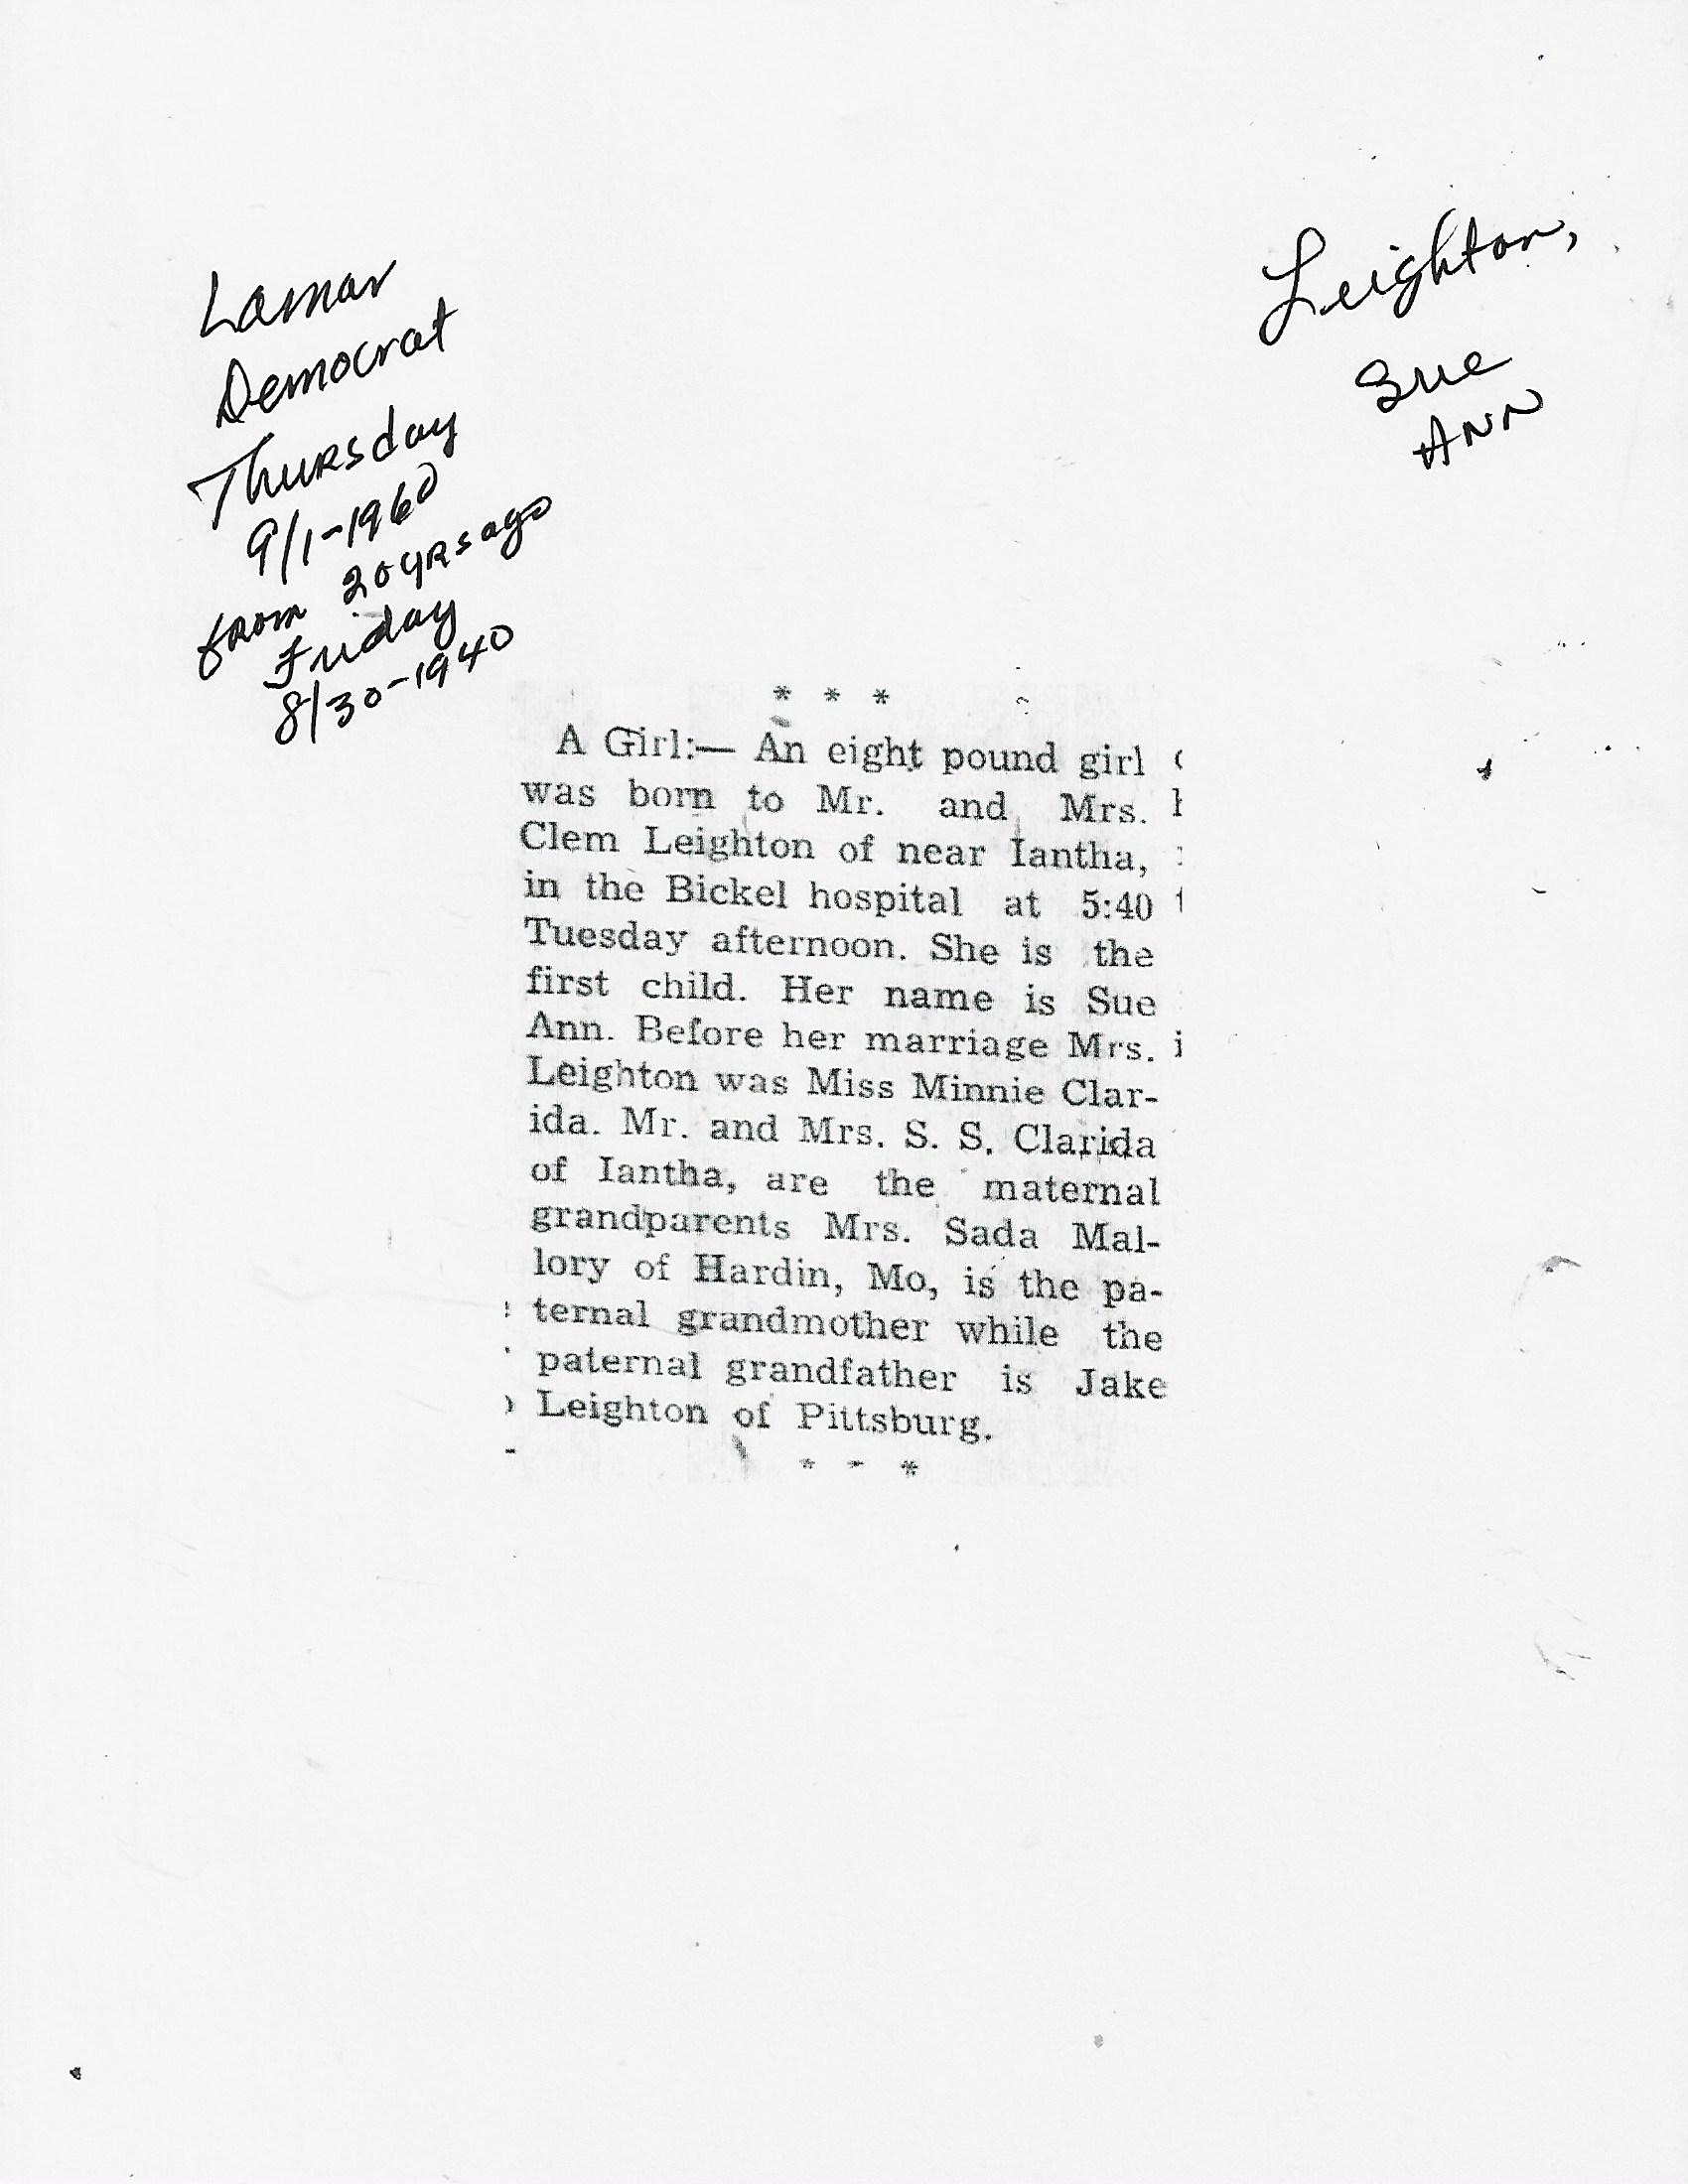 Lamar
Democrat
Thursday
9/1-1960
from 20 yrs ago
Friday
8/30-1940
Leighton,
Sue
Ann
* * *
A Girl:— An eight pound girl
was born to Mr. and Mrs.
Clem Leighton of near Iantha,
in the Bickel hospital at 5:40
Tuesday afternoon. She is the
first child. Her name is Sue
Ann. Before her marriage Mrs.
Leighton was Miss Minnie Clar-
ida. Mr. and Mrs. S. S. Clarida
of Iantha, are the maternal
grandparents Mrs. Sada Mal-
lory of Hardin, Mo, is the pa-
ternal grandmother while the
paternal grandfather is Jake
Leighton of Pittsburg.
* - *